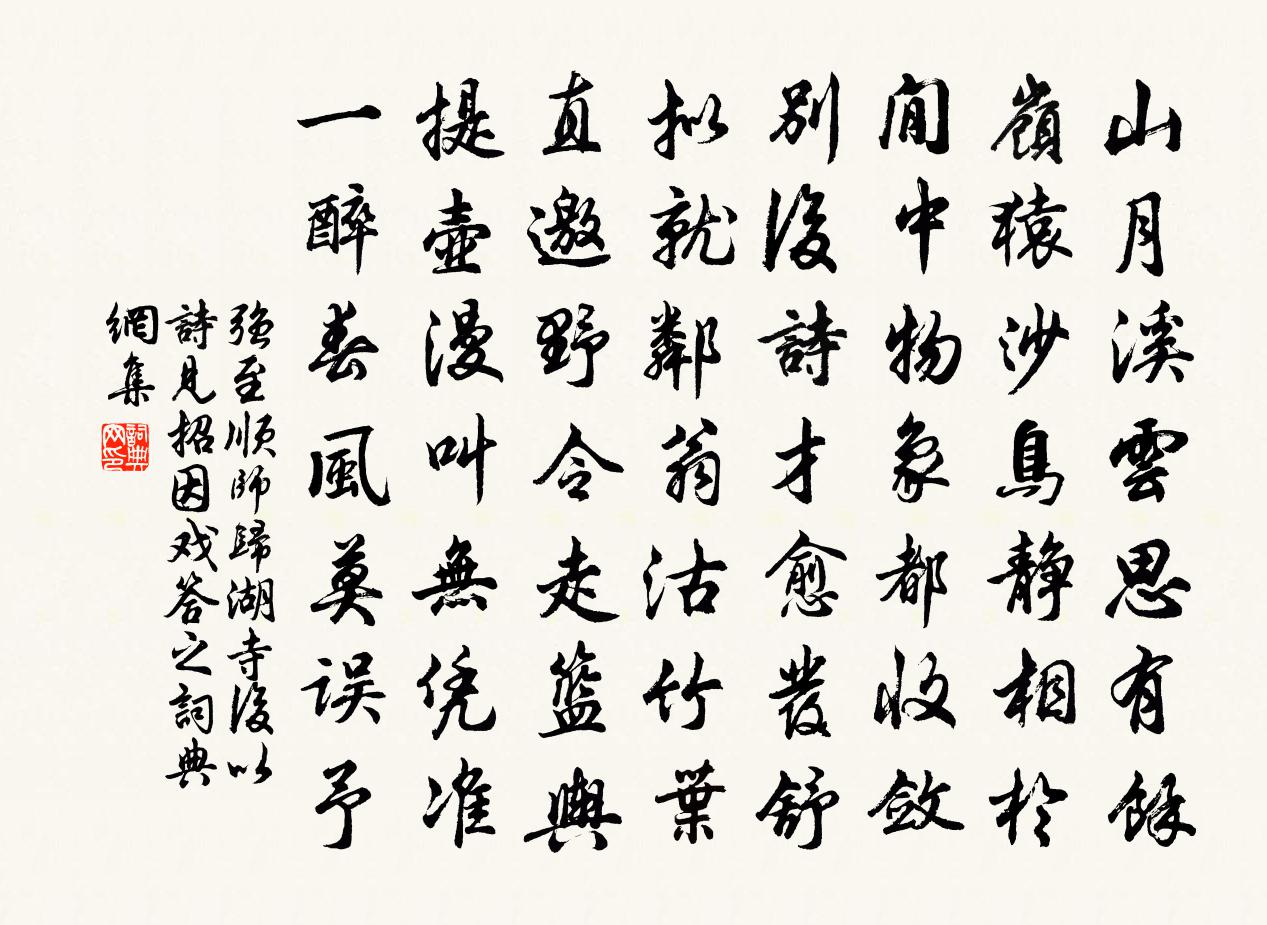 山月溪雲思有餘
嶺猿沙鳥静相於
閒中物象都收斂
別後詩才愈發舒
拟就鄰翁沽竹葉
直邀野令走籃輿
提壺漫叫無凭准
一醉春風莫误予
强至順師歸湖寺後以
詩見招因戏答之詞典
網集
詞典網印